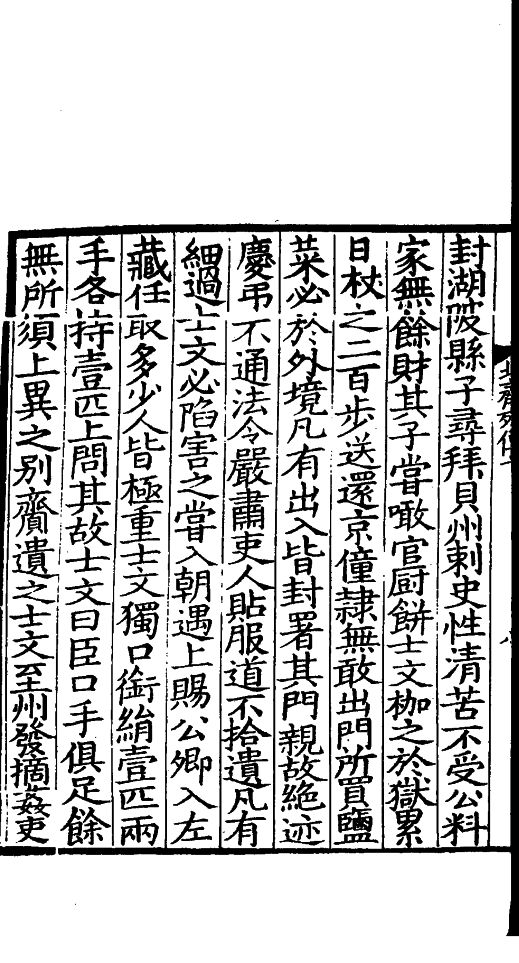 封湖陂縣子尋拜貝州刺史性清苦不受公料
家無餘財其子嘗噉官厨餅士文枷之於獄累
日杖之二百步送還京僮隸無敢出門所買鹽
菜必於外境凡有出入皆封署其門親故絶迹
慶弔不通法令嚴肅吏人貼服道不拾遺凡有
細過士文必陷害之嘗入朝遇上賜公卿入左
藏任取多少人皆極重士文獨口銜絹壹匹兩
手各持壹匹上問其故士文曰臣口手俱足餘
無所須上異之別齎遺之士文至州發摘姦吏